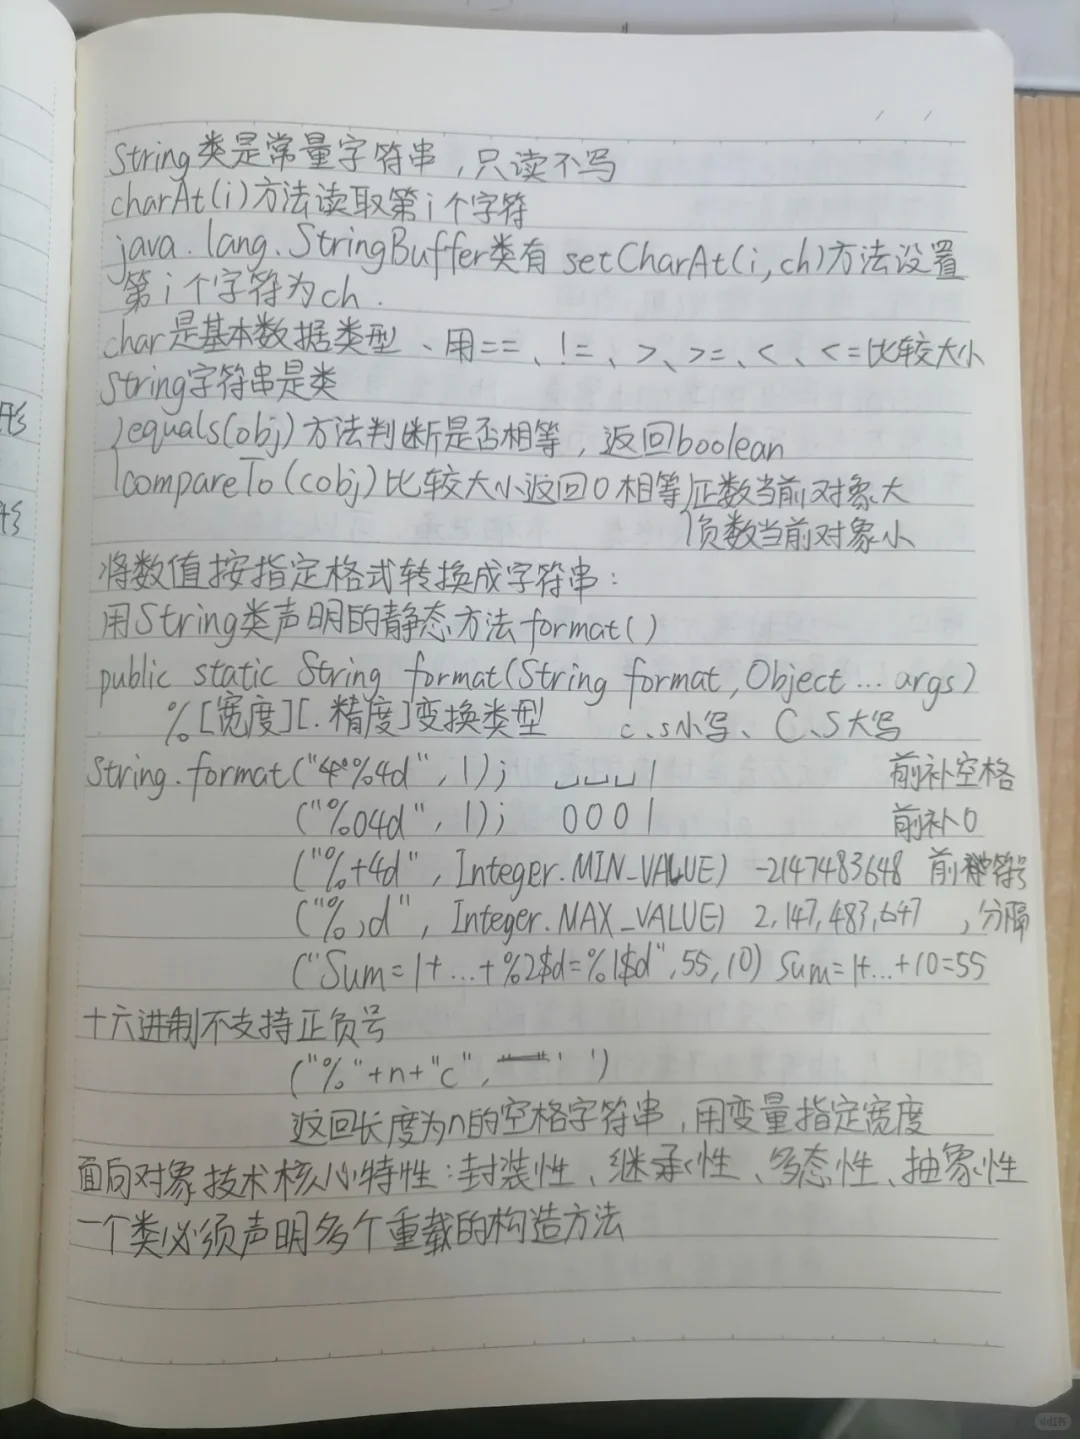 String类是常量字符串，只读不写
charAt(i)方法读取第i个字符
java.lang.StringBuffer类有 setCharAt(i,ch)方法设置
第i个字符为ch.
char是基本数据类型、用==、!=、>、>=、<、<=比较大小
String字符串是类
equals(obj)方法判断是否相等，返回boolean
compareTo(cobj)比较大小返回0相等 正数当前对象大
负数当前对象小
将数值按指定格式转换成字符串：
用String类声明的静态方法format()
public static String format(String format,Object...args)
%[宽度][.精度]变换类型 c、s小写、C、S大写
String.format("%4d",1); ␣␣␣1 前补空格
("%04d",1); 0001 前补0
("%+4d",Integer.MIN_VALUE) -2147483648 前 符号
("%,d",Integer.MAX_VALUE) 2,147,483,647 ,分隔
("Sum=1+...+%2$d=%1$d",55,10) Sum=1+...+10=55
十六进制不支持正负号
("%"+n+"c",' ')
返回长度为n的空格字符串，用变量指定宽度
面向对象技术核心特性：封装性、继承性、多态性、抽象性
一个类必须声明多个重载的构造方法